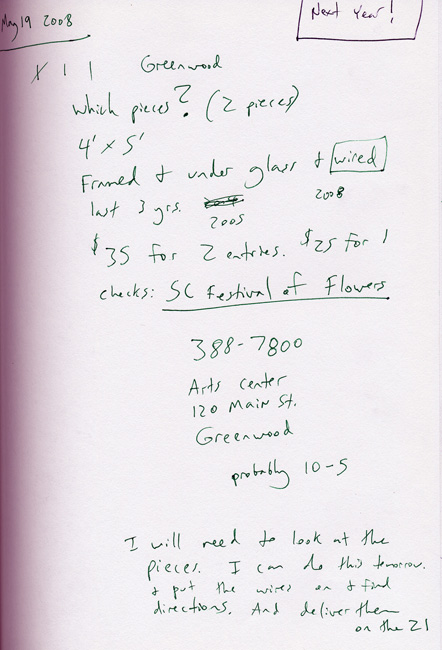 May 19 2008
Next Year!
X 1 1 Greenwood
which pieces? (2 pieces)
4' x 5'
Framed & under glass & wired
last 3 yrs. 2008
2005
$35 for 2 entries. $25 for 1
checks: SC Festival of Flowers
388-7800
Arts Center
120 Main St.
Greenwood
probably 10-5
I will need to look at the
pieces. I can do this tomorrow.
& put the wires on & find
directions. And deliver them
on the 21